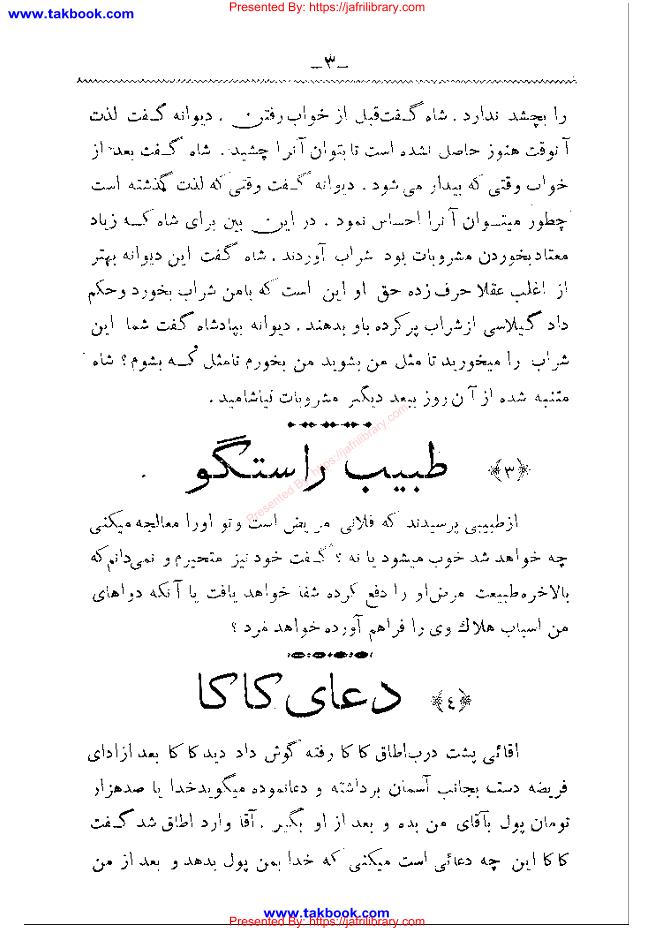 Presented By: https://jafrilibrary.com
www.takbook.com
_٣_
را بچشد ندارد . شاه گفت قبل از خواب رفتن . دیوانه گفت لذت
آنوقت هنوز حاصل نشده است تا بتوان آنرا چشید . شاه گفت بعد از
خواب وقتی که بیدار می شود . دیوانه گفت وقتی که لذت گذشته است
چطور میتوان آنرا احساس نمود . در این بین برای شاه که زیاد
معتاد بخوردن مشروبات بود شراب آوردند . شاه گفت این دیوانه بهتر
از اغلب عقلا حرف زده حق او این است که بامن شراب بخورد وحکم
داد گیلاسی از شراب پر کرده باو بدهند . دیوانه بپادشاه گفت شما این
شراب را میخورید تا مثل من بشوید من بخورم تامثل که بشوم ؟ شاه
متنبه شده از آن روز ببعد دیگر مشروبات نیاشامید .
﴿٣﴾ طبیب راستگو
Presented By: https://jafrilibrary.com
از طبیبی پرسیدند که فلانی مریض است و تو اورا معالجه میکنی
چه خواهد شد خوب میشود یا نه ؟ گفت خود نیز متحیرم و نمی‌دانم که
بالاخره طبیعت مرض او را دفع کرده شفا خواهد یافت یا آنکه دواهای
من اسباب هلاك وی را فراهم آورده خواهد مرد ؟
﴿٤﴾ دعای کاکا
اقائی پشت درب اطاق کاکا رفته گوش داد دید کاکا بعد ازادای
فریضه دست بجانب آسمان برداشته و دعا نموده میگوید خدا یا صدهزار
تومان پول بآقای من بده و بعد از او بگیر . آقا وارد اطاق شد گفت
کاکا این چه دعائی است میکنی که خدا بمن پول بدهد و بعد از من
www.takbook.com
Presented By: https://jafrilibrary.com